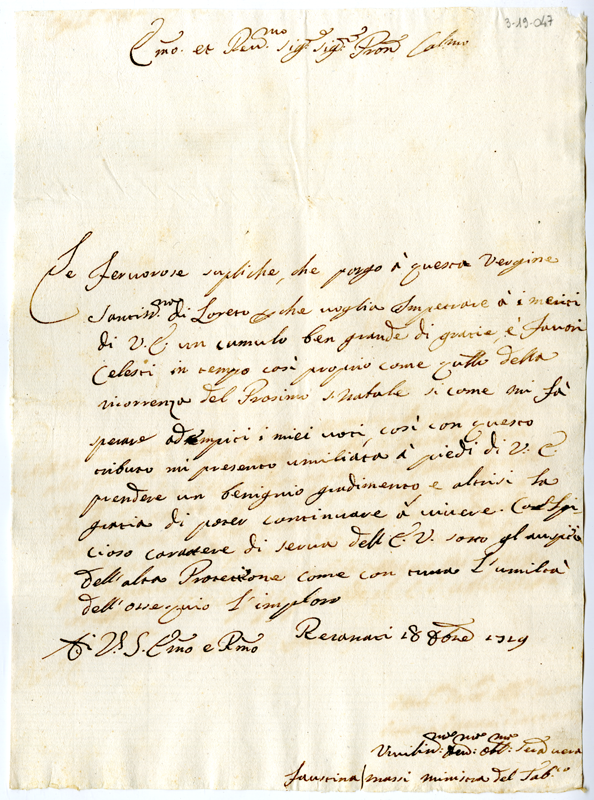 3-19-047
Emo. et Reu.mo Sig.r Sig.r Pron. Col.mo
Le feruorose supliche, che porgo à questa Vergine
Santis.ma di Loreto che uoglia Impetrare à i meriti
di V.E. un cumulo ben grande di gratie, è fauori
Celesti in tempo così proprio come q.llo della
ricorrenza del Prosimo S. Natale si come mi fà
sperare adempiti i miei uoti, così con questo
tributo mi presento umiliata à piedi di V.E.
prendere un benignio gradimento e altrisi la
gratia di poter continuare à uiuere. Col spi
cioso carattere di serua dell'E.V. sotto gl'auspici
dell'alta Protetione come con tutta l'umiltà
dell'ossequio l'imploro
Di V.S. Emo e Rmo Recanati 18 Xbre 1719
Vmilis.ma Deu.ma Obl.ma Serua uera
Faustina Massi ministra del Tab.io